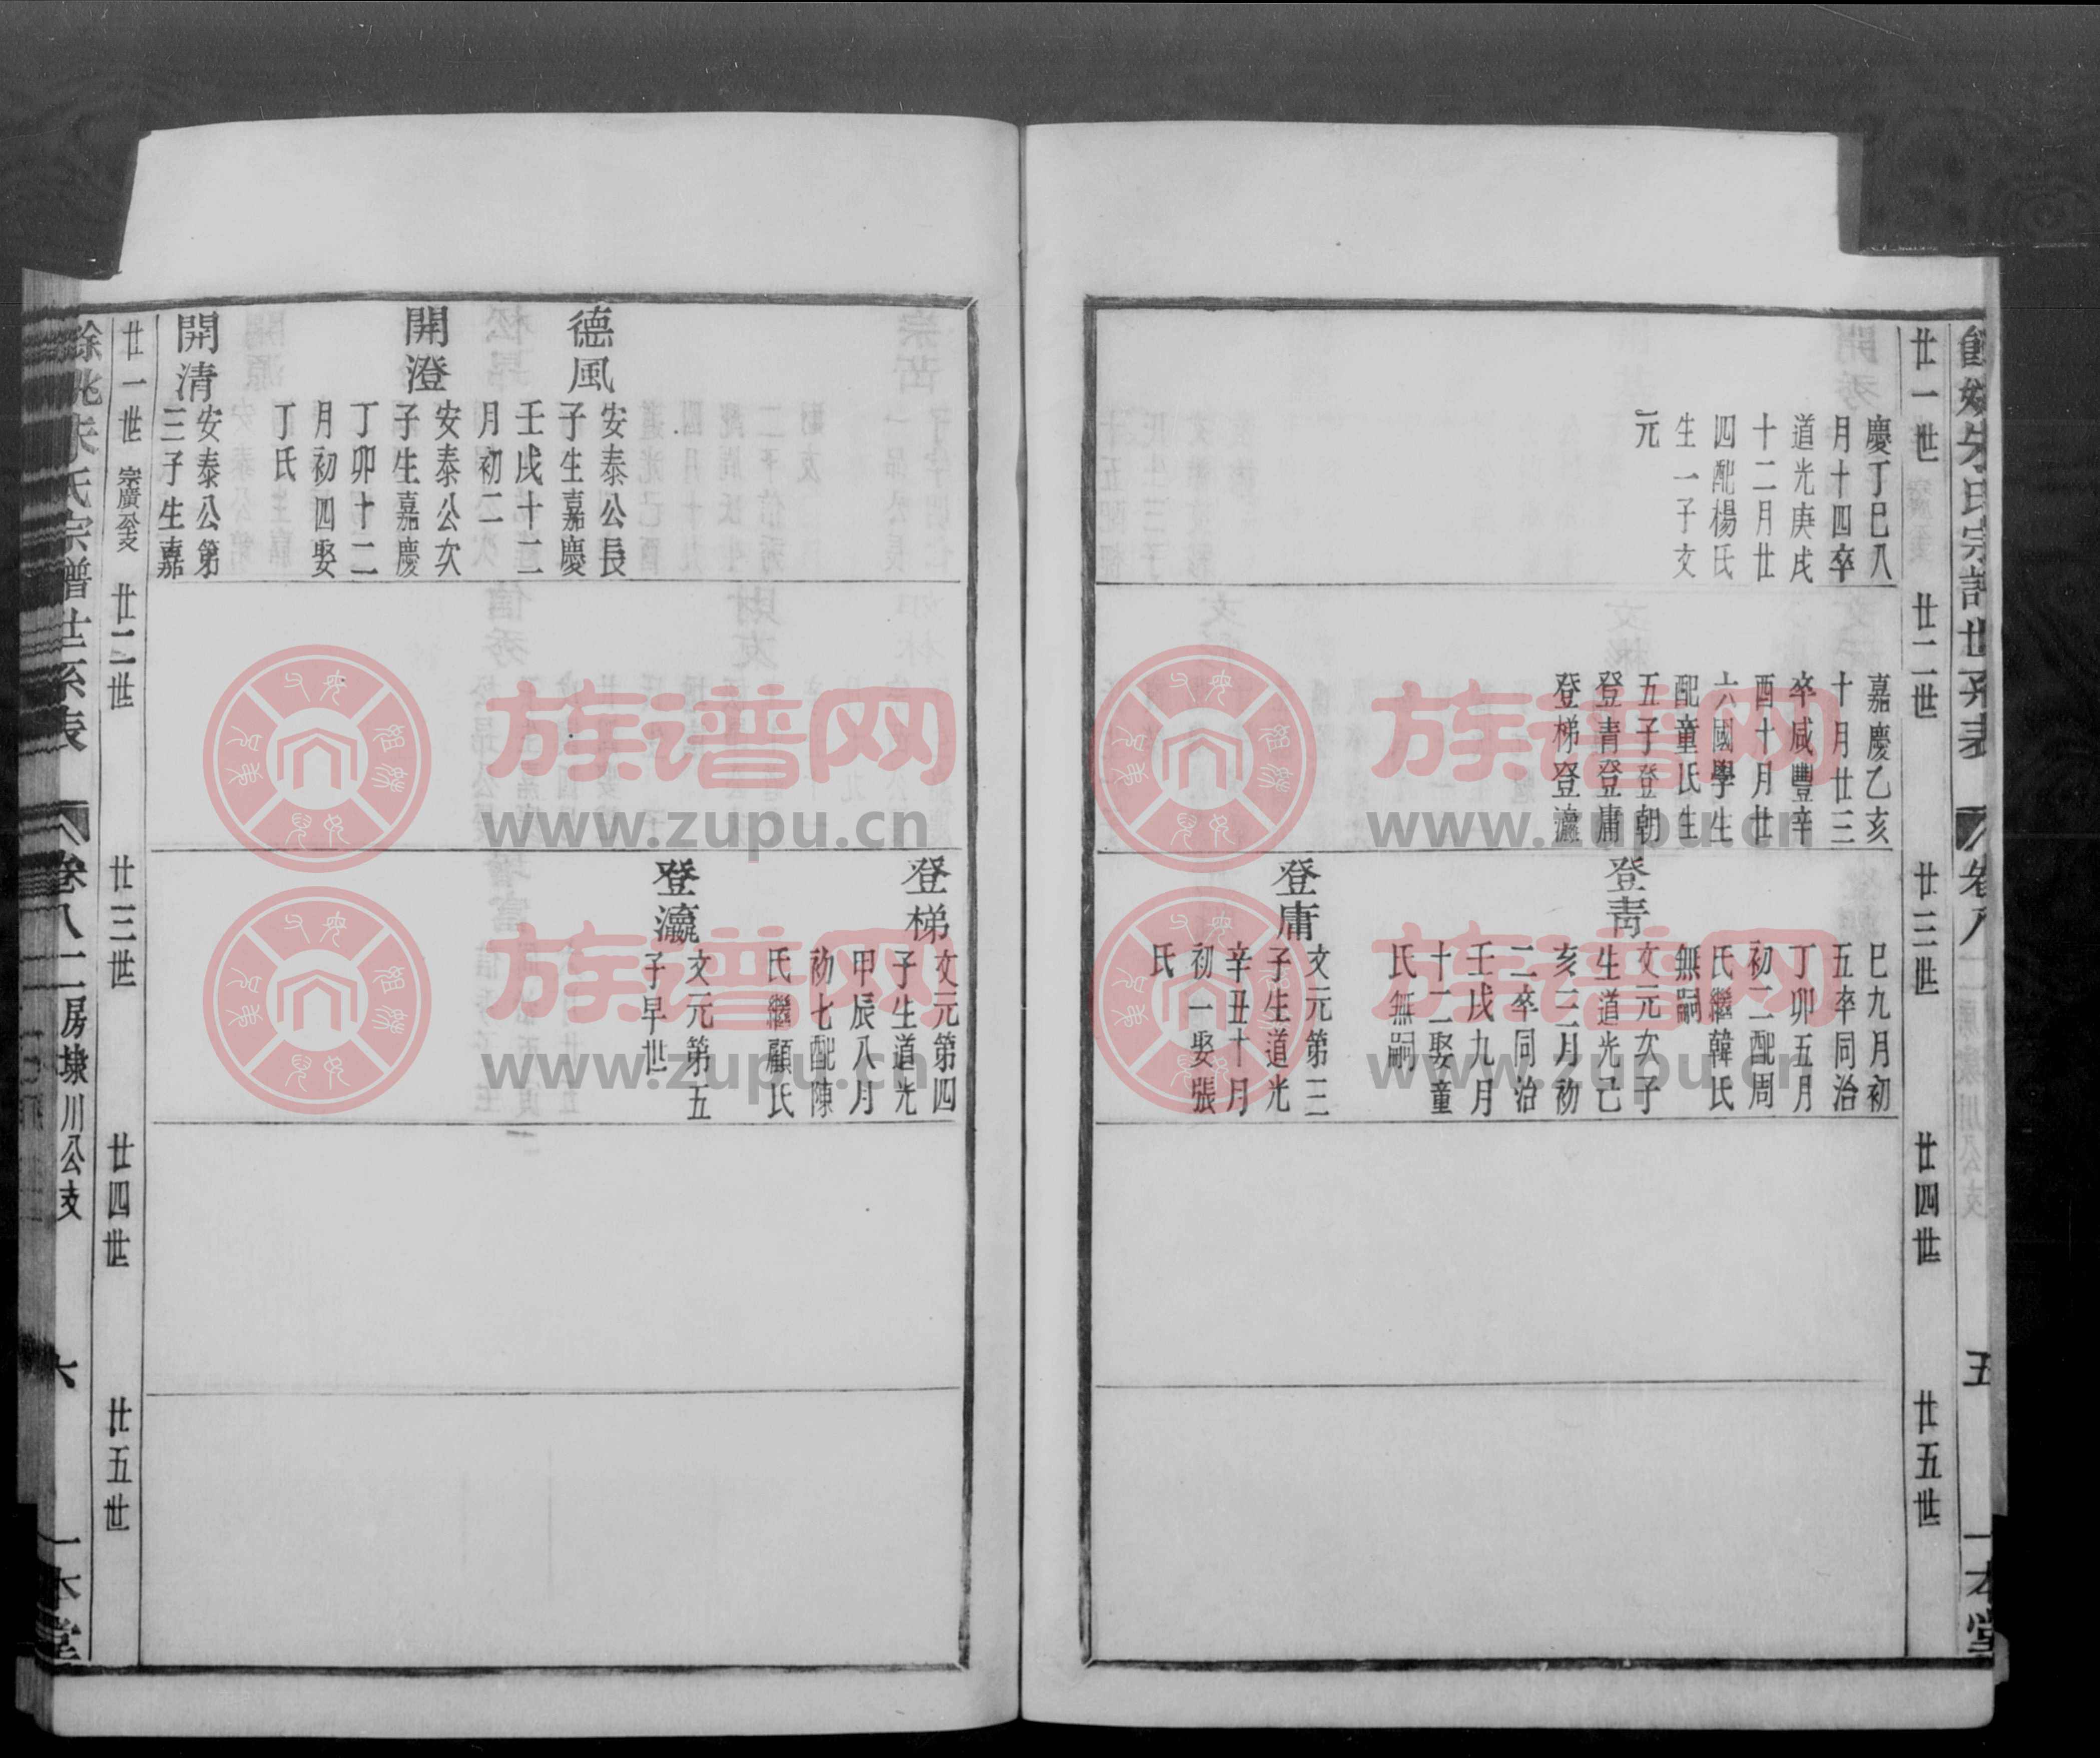 餘姚朱氏宗譜世系表
卷八
五
一本堂
廿一世
廿二世
廿三世
廿四世
廿五世
慶丁巳八
月十四卒
道光庚戌
十二月廿
四配楊氏
生一子文
元
嘉慶乙亥
十月廿三
卒咸豐辛
酉十月廿
六國學生
配童氏生
五子登朝
登青登庸
登梯登瀛
巳九月初
五卒同治
丁卯五月
初二配周
氏繼韓氏
無嗣
登青
文元次子
生道光己
亥三月初
二卒同治
壬戌九月
十二娶童
氏無嗣
登庸
文元第三
子生道光
辛丑十月
初一娶張
氏
德風
安泰公長
子生嘉慶
壬戌十二
月初二
開澄
安泰公次
子生嘉慶
丁卯十二
月初四娶
丁氏
開清
安泰公第
三子生嘉
登梯
文元第四
子生道光
甲辰八月
初七配陳
氏繼顧氏
登瀛
文元第五
子早世
廿一世 宗廣至支
廿二世
廿三世
廿四世
廿五世
餘姚朱氏宗譜世系表
卷八二房埭川公支
六
一本堂
族谱网
www.zupu.cn
族谱网
www.zupu.cn
族谱网
www.zupu.cn
族谱网
www.zupu.cn